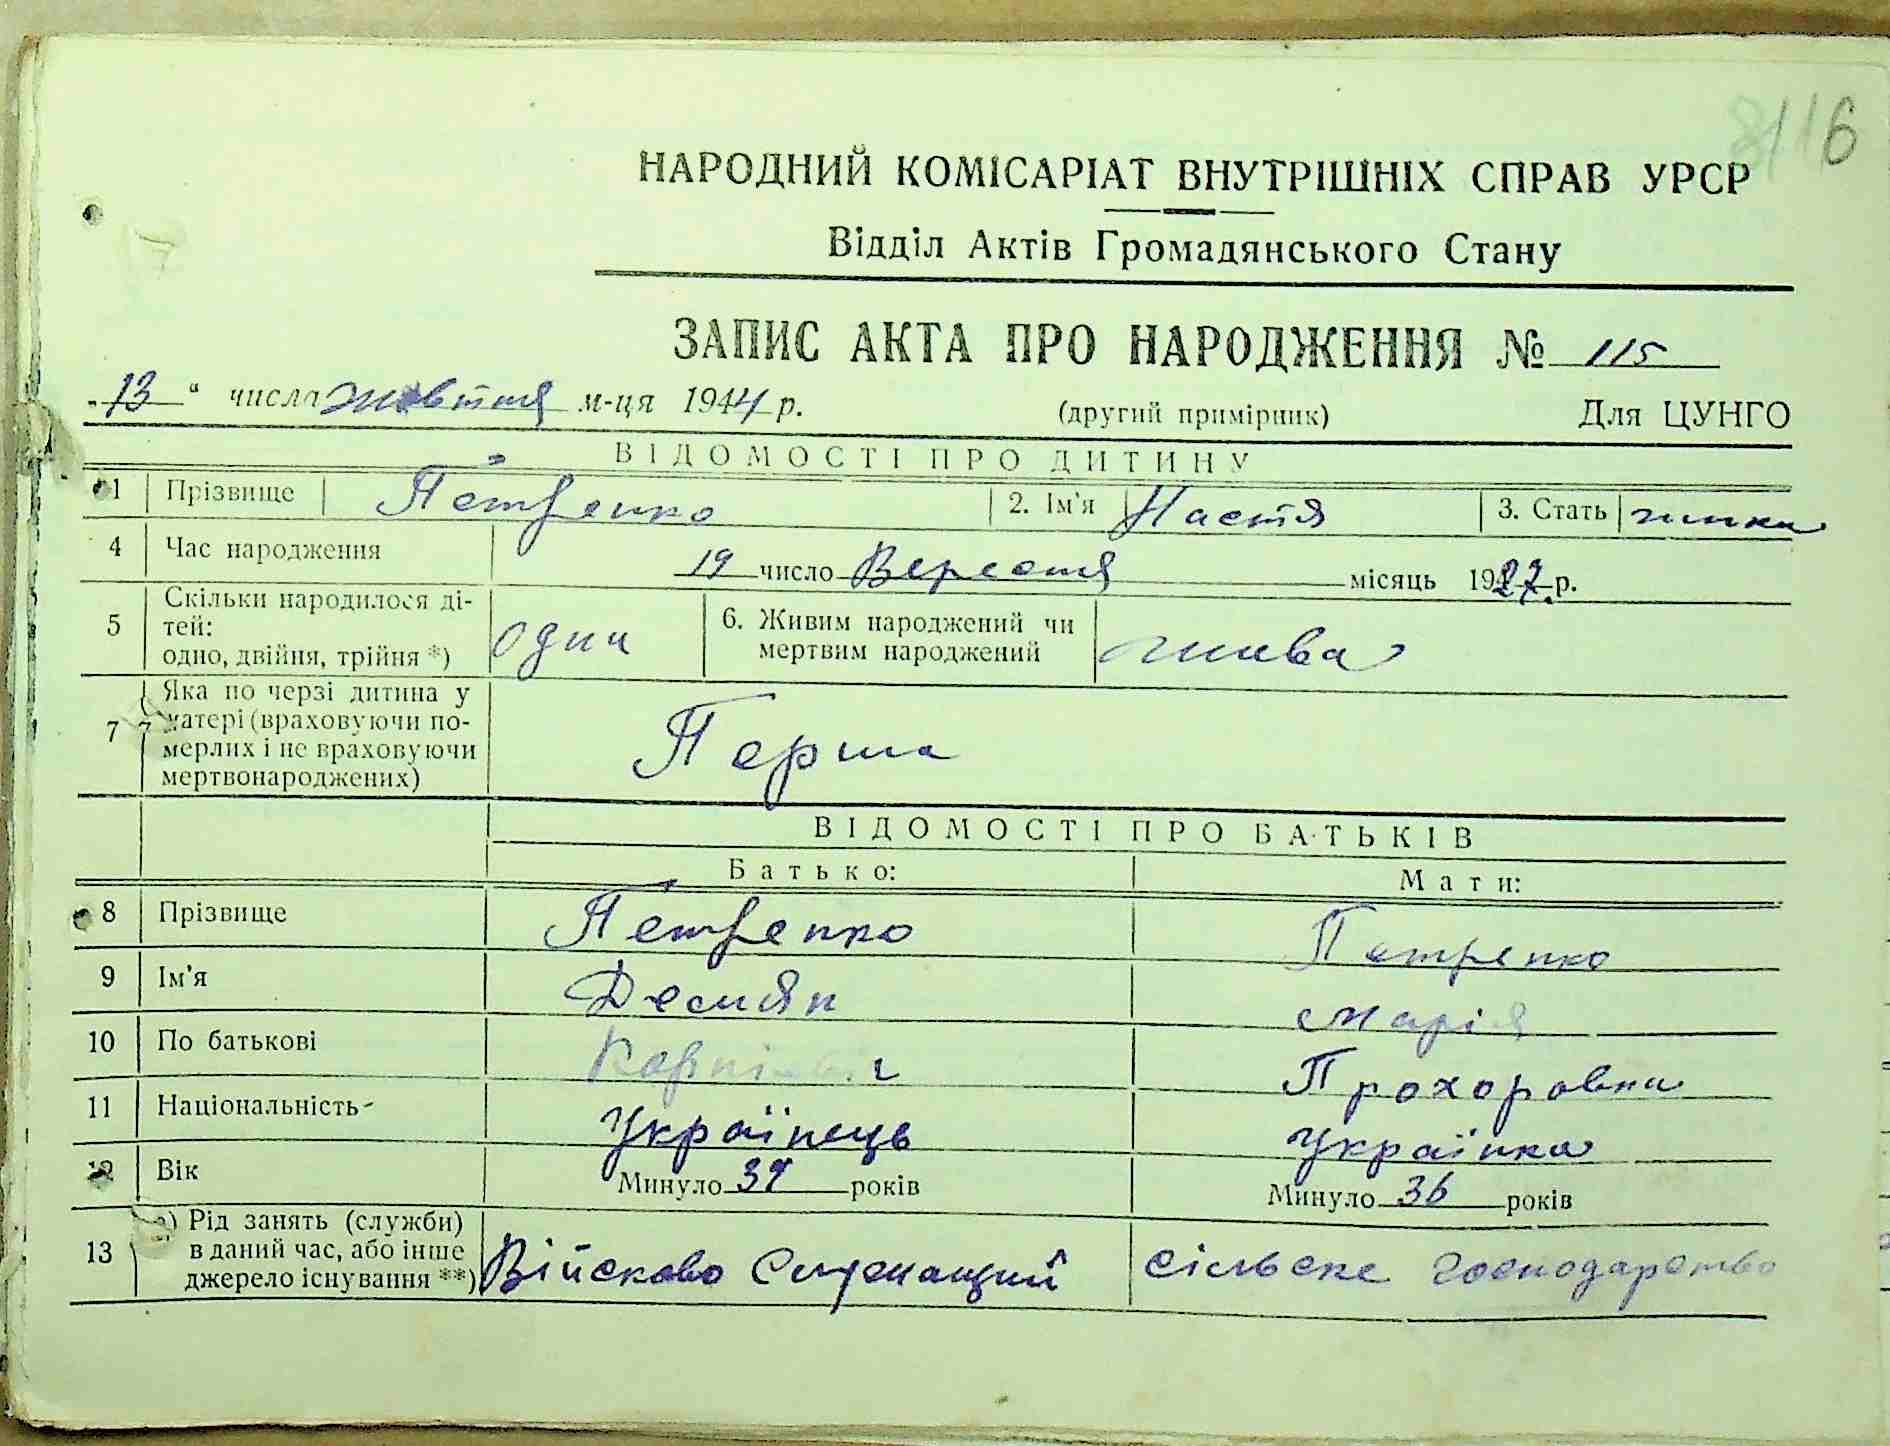 8116
НАРОДНИЙ КОМІСАРІАТ ВНУТРІШНІХ СПРАВ УРСР
Відділ Актів Громадянського Стану
ЗАПИС АКТА ПРО НАРОДЖЕННЯ № 115
„13“ числа жовтня м-ця 1944 р. (другий примірник) Для ЦУНГО
ВІДОМОСТІ ПРО ДИТИНУ
1 Прізвище Петренко 2. Ім'я Настя 3. Стать жінка
4 Час народження 19 число Вересня місяць 1927 р.
5 Скільки народилося ді-
тей:
одно, двійня, трійня *) одна 6. Живим народжений чи
мертвим народжений жива
7 Яка по черзі дитина у
матері (враховуючи по-
мерлих і не враховуючи
мертвонароджених) Перша
ВІДОМОСТІ ПРО БАТЬКІВ
Батько: Мати:
8 Прізвище Петренко Петренко
9 Ім'я Демян Марія
10 По батькові Прохоровна
11 Національність Українець Українка
12 Вік Минуло 39 років Минуло 36 років
13 а) Рід занять (служби)
в даний час, або інше
джерело існування **) Військово Служащий сільське господарство